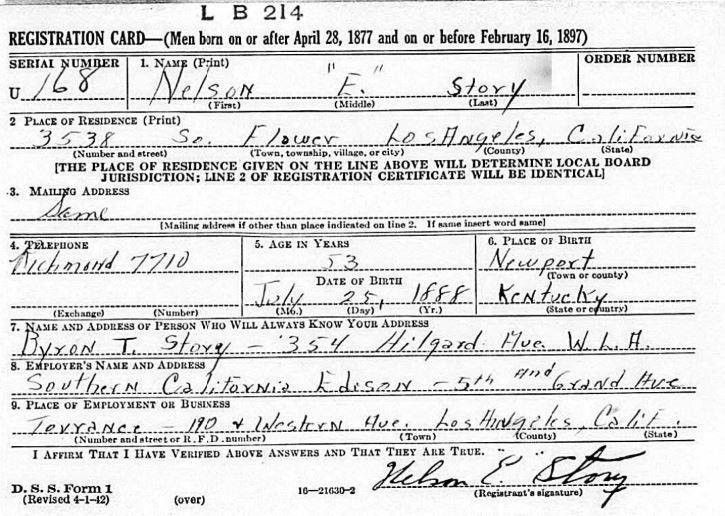 L B 214
REGISTRATION CARD—(Men born on or after April 28, 1877 and on or before February 16, 1897)
SERIAL NUMBER 1. NAME (Print) ORDER NUMBER
U 168 Nelson "E." Story
(First) (Middle) (Last)
2 PLACE OF RESIDENCE (Print)
3538 So. Flower Los Angeles, California
(Number and street) (Town, township, village, or city) (County) (State)
[THE PLACE OF RESIDENCE GIVEN ON THE LINE ABOVE WILL DETERMINE LOCAL BOARD
JURISDICTION; LINE 2 OF REGISTRATION CERTIFICATE WILL BE IDENTICAL]
3. MAILING ADDRESS
Same
[Mailing address if other than place indicated on line 2. If same insert word same]
4. TELEPHONE 5. AGE IN YEARS 6. PLACE OF BIRTH
Richmond 7710 53 Newport
(Town or county)
DATE OF BIRTH
July 25, 1888 Kentucky
(Exchange) (Number) (Mo.) (Day) (Yr.) (State or country)
7. NAME AND ADDRESS OF PERSON WHO WILL ALWAYS KNOW YOUR ADDRESS
Byron T. Story - 354 Hilgard Ave. W.L.A.
8. EMPLOYER'S NAME AND ADDRESS
Southern California Edison - 5th and Grand Ave
9. PLACE OF EMPLOYMENT OR BUSINESS
Torrance - 190 & Western Ave. Los Angeles, Calif.
(Number and street or R. F. D. number) (Town) (County) (State)
I AFFIRM THAT I HAVE VERIFIED ABOVE ANSWERS AND THAT THEY ARE TRUE.
Nelson "E." Story
D. S. S. Form 1
(Revised 4-1-42) (over) 16—21630-2 (Registrant's signature)